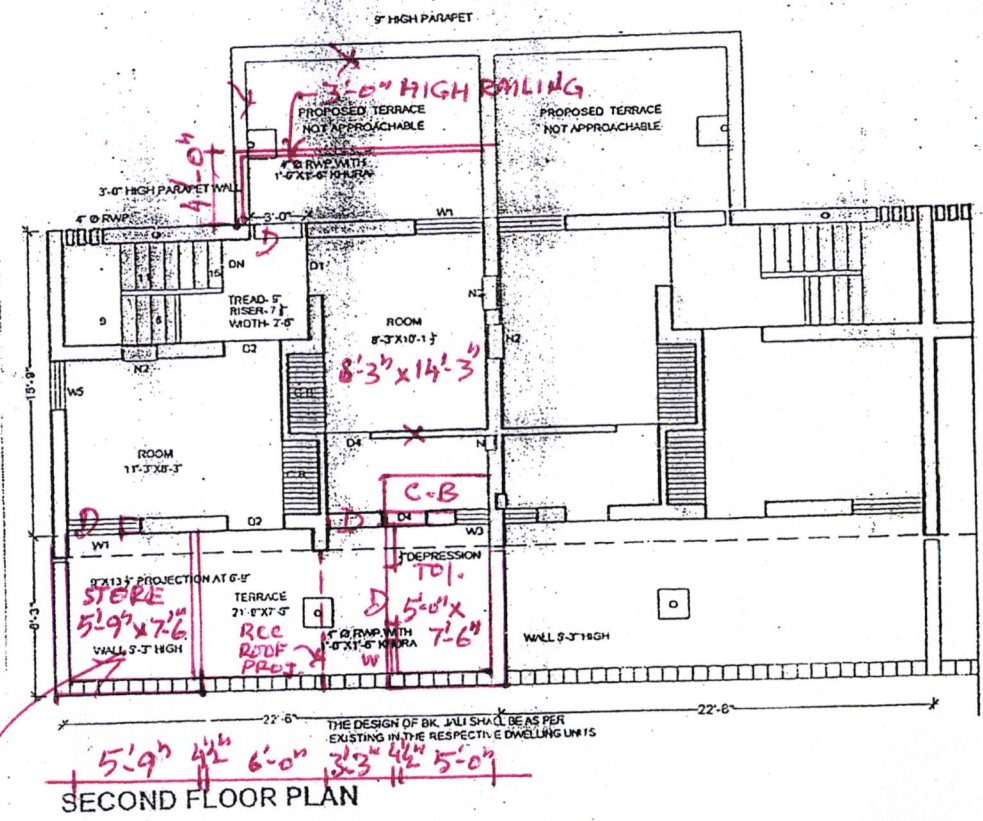 9" HIGH PARAPET
3'-0" HIGH RAILING
PROPOSED TERRACE
NOT APPROACHABLE
PROPOSED TERRACE
NOT APPROACHABLE
4'-0"
4" Ø RWP WITH
1'-6"X1'-6" KHURA
3'-0" HIGH PARAPET WALL
4" Ø RWP
3'-0"
W1
D
DN
D1
11
15
TREAD- 9"
RISER- 7 1/2"
WIDTH- 2'-6"
9
N2
ROOM
8'-3"X10'-1 1/2"
8'-3" x 14'-3"
N2
D2
N2
W5
15'-9"
C.B.
D4
N
ROOM
11'-3"X8'-3"
C.B.
C-B
D
W1
D2
D
D4
W3
9"X13 1/2" PROJECTION AT 6'-9"
DEPRESSION
TOI.
STORE
5'-9" x 7'-6"
TERRACE
D
5'-0" x
7'-6"
8'-3"
RCC
ROOF
PROJ.
4" Ø RWP WITH
1'-6"X1'-6" KHURA
W
WALL 5'-3" HIGH
WALL 5'-3" HIGH
22'-6"
22'-6"
THE DESIGN OF BK. JALI SHALL BE AS PER
EXISTING IN THE RESPECTIVE DWELLING UNITS
5'-9" 4½" 6'-0" 3'-3" 4½" 5'-0"
SECOND FLOOR PLAN